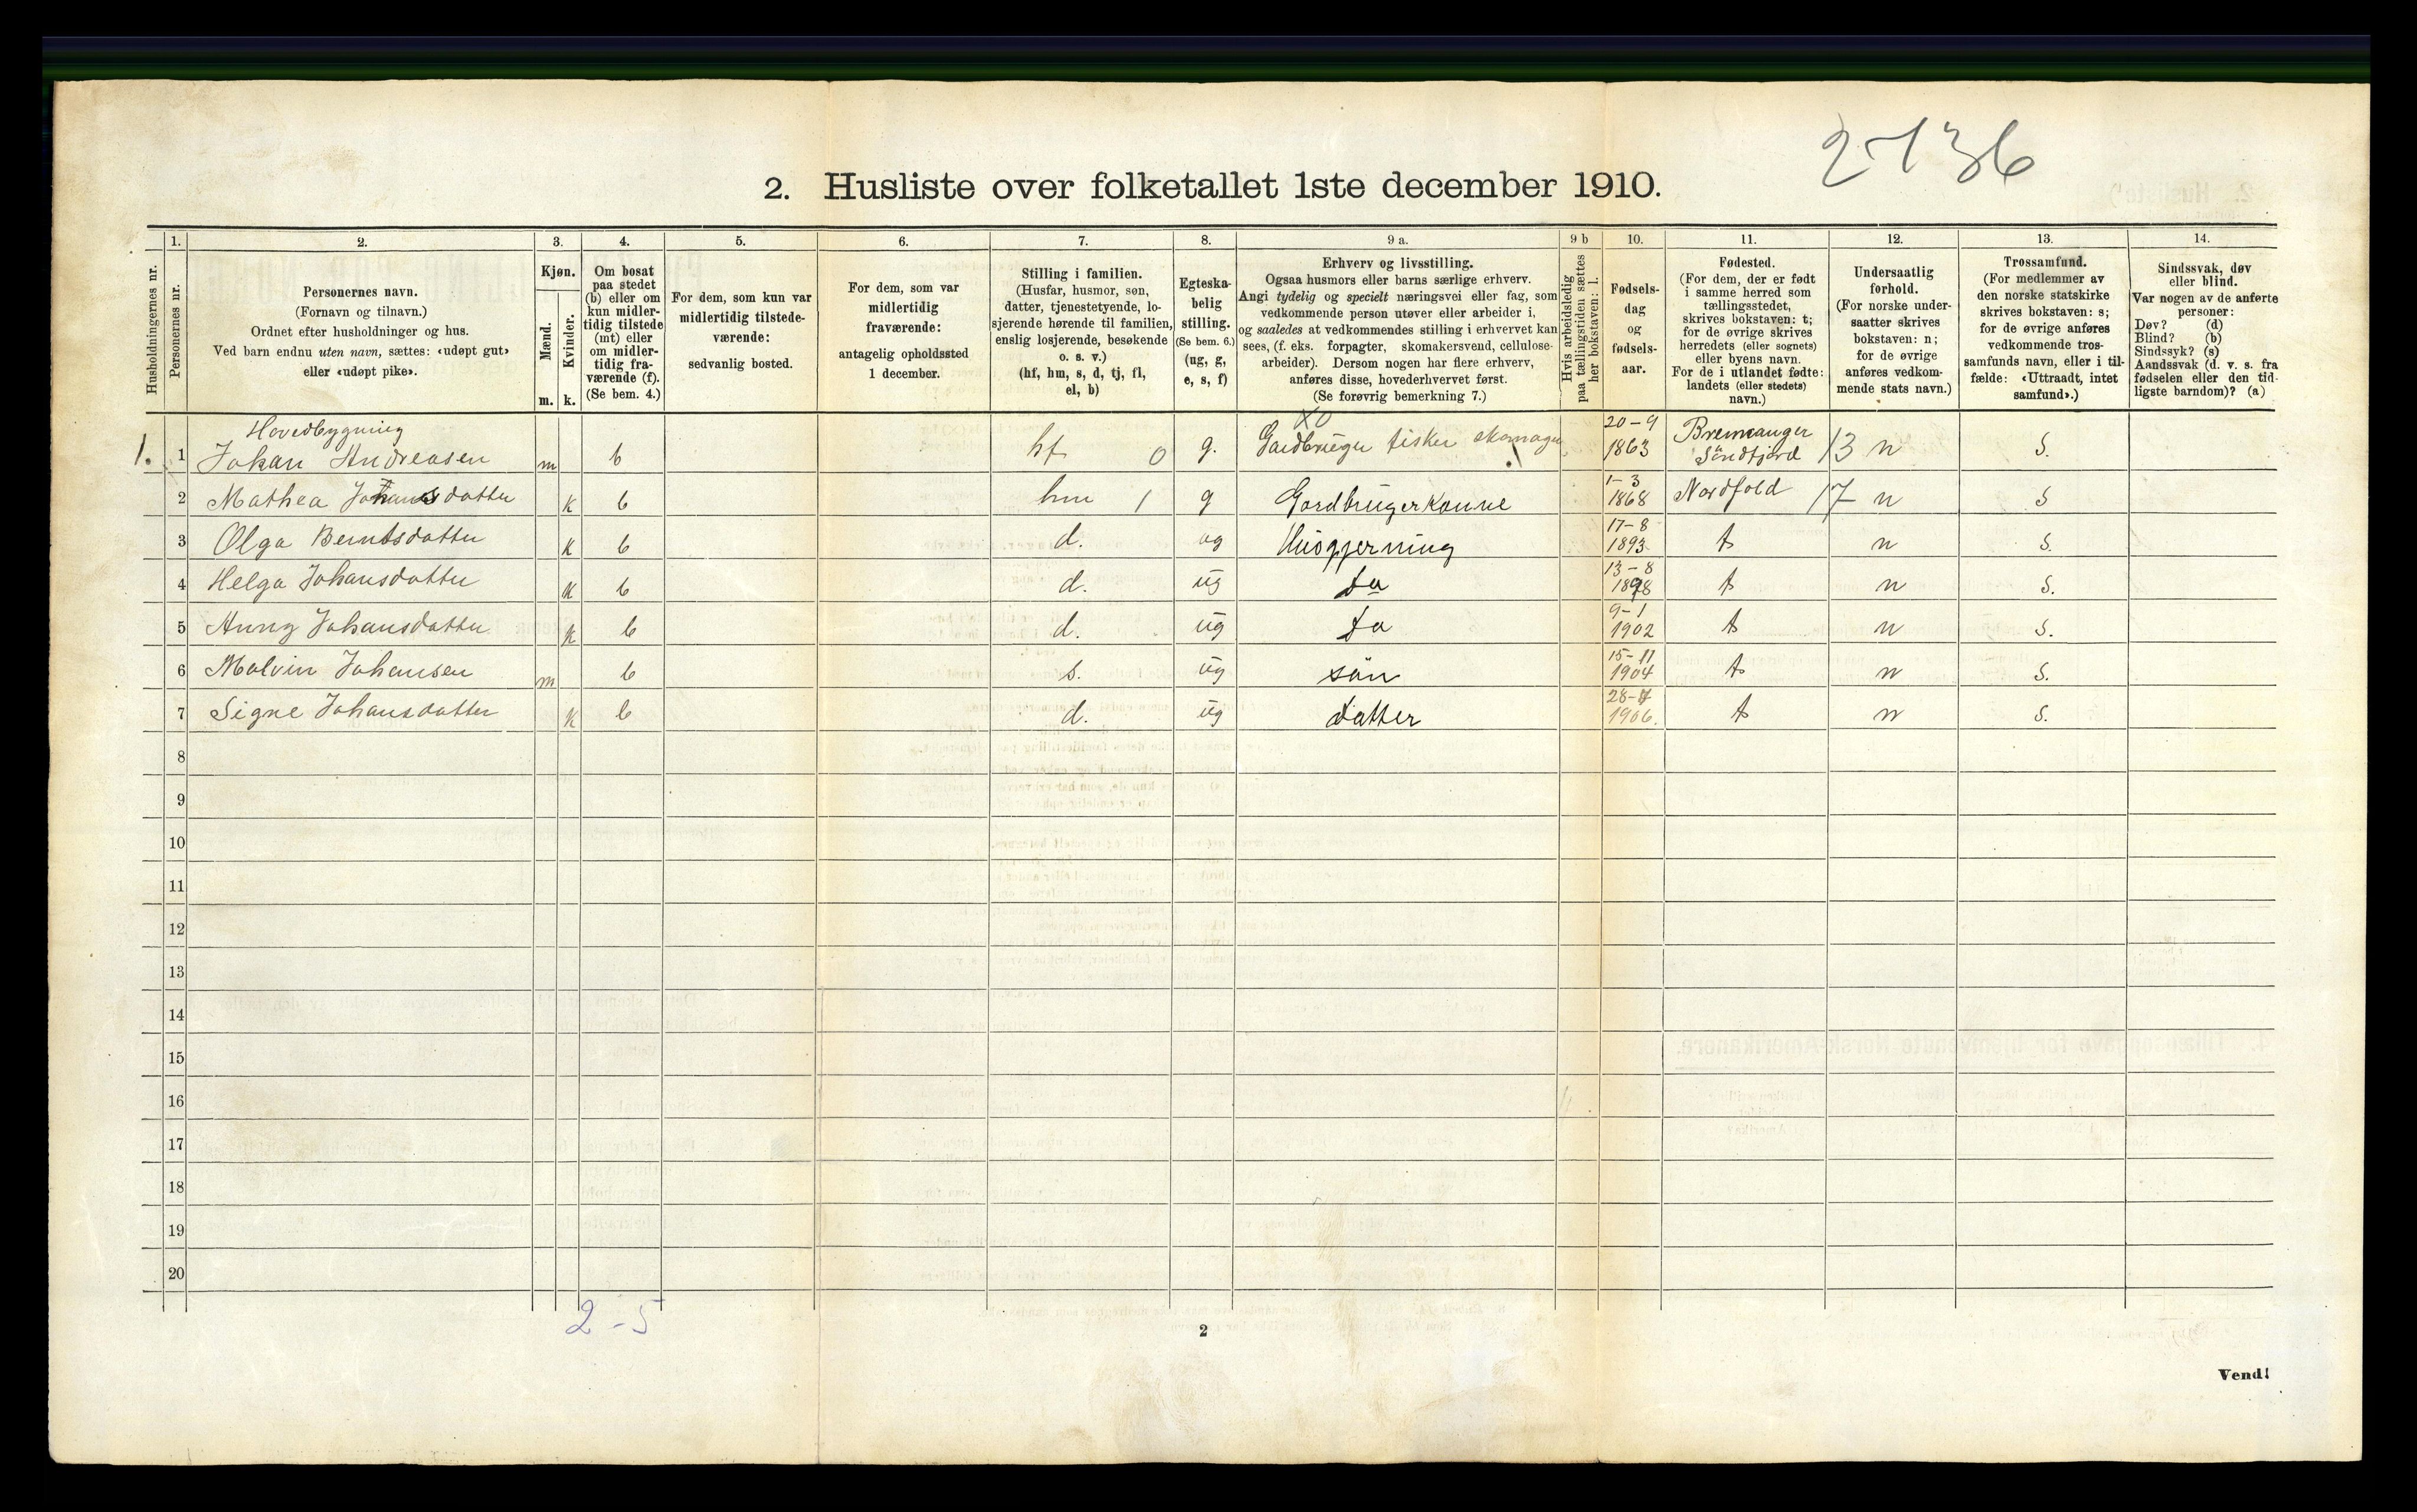 2-136
2. Husliste over folketallet 1ste december 1910.
1. 2. 3. 4. 5. 6. 7. 8. 9 a. 9 b 10. 11. 12. 13. 14.
Husholdningernes nr.
Personernes nr.
Personernes navn.
(Fornavn og tilnavn.)
Ordnet efter husholdninger og hus.
Ved barn endnu uten navn, sættes: «udøpt gut»
eller «udøpt pike».
Kjøn.
Mænd.
Kvinder.
m. k.
Om bosat
paa stedet
(b) eller om
kun midler-
tidig tilstede
(mt) eller
om midler-
tidig fra-
værende (f).
(Se bem. 4.)
For dem, som kun var
midlertidig tilstede-
værende:
sedvanlig bosted.
For dem, som var
midlertidig
fraværende:
antagelig opholdssted
1 december.
Stilling i familien.
(Husfar, husmor, søn,
datter, tjenestetyende, lo-
sjerende hørende til familien,
enslig losjerende, besøkende
o. s. v.)
(hf, hm, s, d, tj, fl,
el, b)
Egteska-
belig
stilling.
(Se bem. 6.)
(ug, g,
e, s, f)
Erhverv og livsstilling.
Ogsaa husmors eller barns særlige erhverv.
Angi tydelig og specielt næringsvei eller fag, som
vedkommende person utøver eller arbeider i,
og saaledes at vedkommendes stilling i erhvervet kan
sees, (f. eks. forpagter, skomakersvend, cellulose-
arbeider). Dersom nogen har flere erhverv,
anføres disse, hovederhvervet først.
(Se forøvrig bemerkning 7.)
Hvis arbeidsledig
paa tællingstiden sættes
her bokstaven: l.
Fødsels-
dag
og
fødsels-
aar.
Fødested.
(For dem, der er født
i samme herred som
tællingsstedet,
skrives bokstaven: t;
for de øvrige skrives
herredets (eller sognets)
eller byens navn.
For de i utlandet fødte:
landets (eller stedets)
navn.)
Undersaatlig
forhold.
(For norske under-
saatter skrives
bokstaven: n;
for de øvrige
anføres vedkom-
mende stats navn.)
Trossamfund.
(For medlemmer av
den norske statskirke
skrives bokstaven: s;
for de øvrige anføres
vedkommende tros-
samfunds navn, eller i til-
fælde: «Uttraadt, intet
samfund».)
Sindssvak, døv
eller blind.
Var nogen av de anførte
personer:
Døv? (d)
Blind? (b)
Sindssyk? (s)
Aandssvak (d. v. s. fra
fødselen eller den tid-
ligste barndom)? (a)
Hovedbygning
X0
1. 1 Johan Andreasen m b hf 0 g. Gardbruger fisker skomager 20-9 1863 Bremanger Söndfjord 13 n S.
2 Mathea Johansdatter k b hm 1 g Gardbrugerkonne 1-3 1868 Nordfold 17 n S
3 Olga Berntsdatter k b d. ug Husgjerning 17-8 1893 t n S.
4 Helga Johansdatter k b d. ug do 13-8 1898 t n S.
5 Anny Johansdatter k b d. ug do 9-1 1902 t n S.
6 Malvin Johansen m b s. ug sön 15-11 1904 t n S.
7 Signe Johansdatter k b d. ug datter 28-7 1906. t n S.
8
9
10
11
12
13
14
15
16
17
18
19
20
2-5
2
Vend!